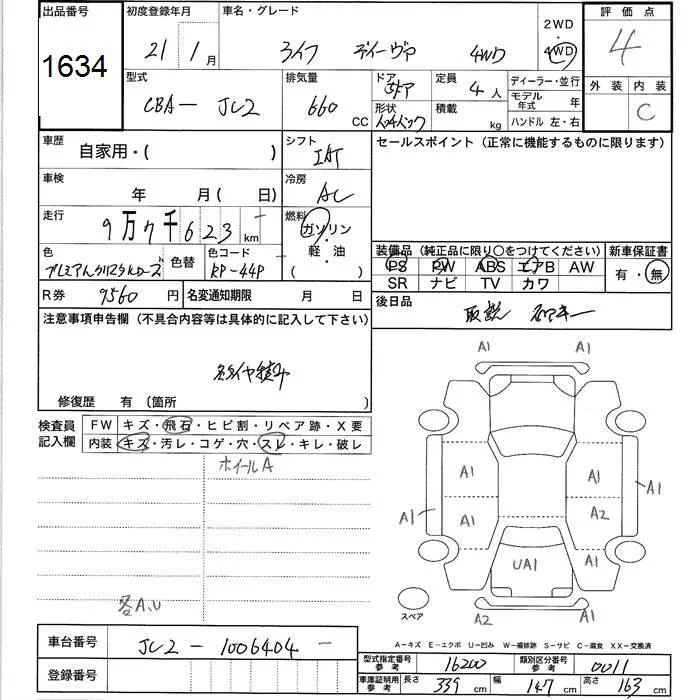 出品番号 初度登録年月 車名・グレード 2WD 評価点
1634 21年1月 ライフ ディーヴァ 4WD 4WD 4
型式 排気量 ドア 定員 ディーラー・並行 外装 内装
CBA- JC2 660 CC 5ドア 4人 モデル年式 年 C
形状 積載 kg ハンドル 左・右
車歴 自家用・( ) シフト IAT セールスポイント (正常に機能するものに限ります)
車検 年 月( 日) 冷房 AC
走行 9万7千623 km 燃料 ガソリン
軽・油
( )
色 プレミアムクリスタルローズ 色替 色コード RP-44P
装備品 (純正品に限り○をつけてください) 新車保証書
PS PW ABS エアB AW 有・無
SR ナビ TV カワ
R券 9560円 名変通知期限 月 日 後日品 取説
注意事項申告欄 (不具合内容等は具体的に記入して下さい)
修復歴 有 (箇所
検査員 FW キズ・飛石・ヒビ割・リペア跡・X要
記入欄 内装 キズ・汚レ・コゲ・穴・スレ・キレ・破レ
ホイールA
各A.U
A1 A1
A1 A1
A1
A1 A1 A2
UA1 A1
スペア A2 A1
A-キズ E-エクボ U-凹み W-補修跡 S-サビ C-腐食 XX-交換済
車台番号 JC2-1006404-
登録番号
型式指定番号 参考 16200 類別区分番号 参考 0011
車庫証明用 参考 長さ 339 cm 幅 147 cm 高さ 163 cm